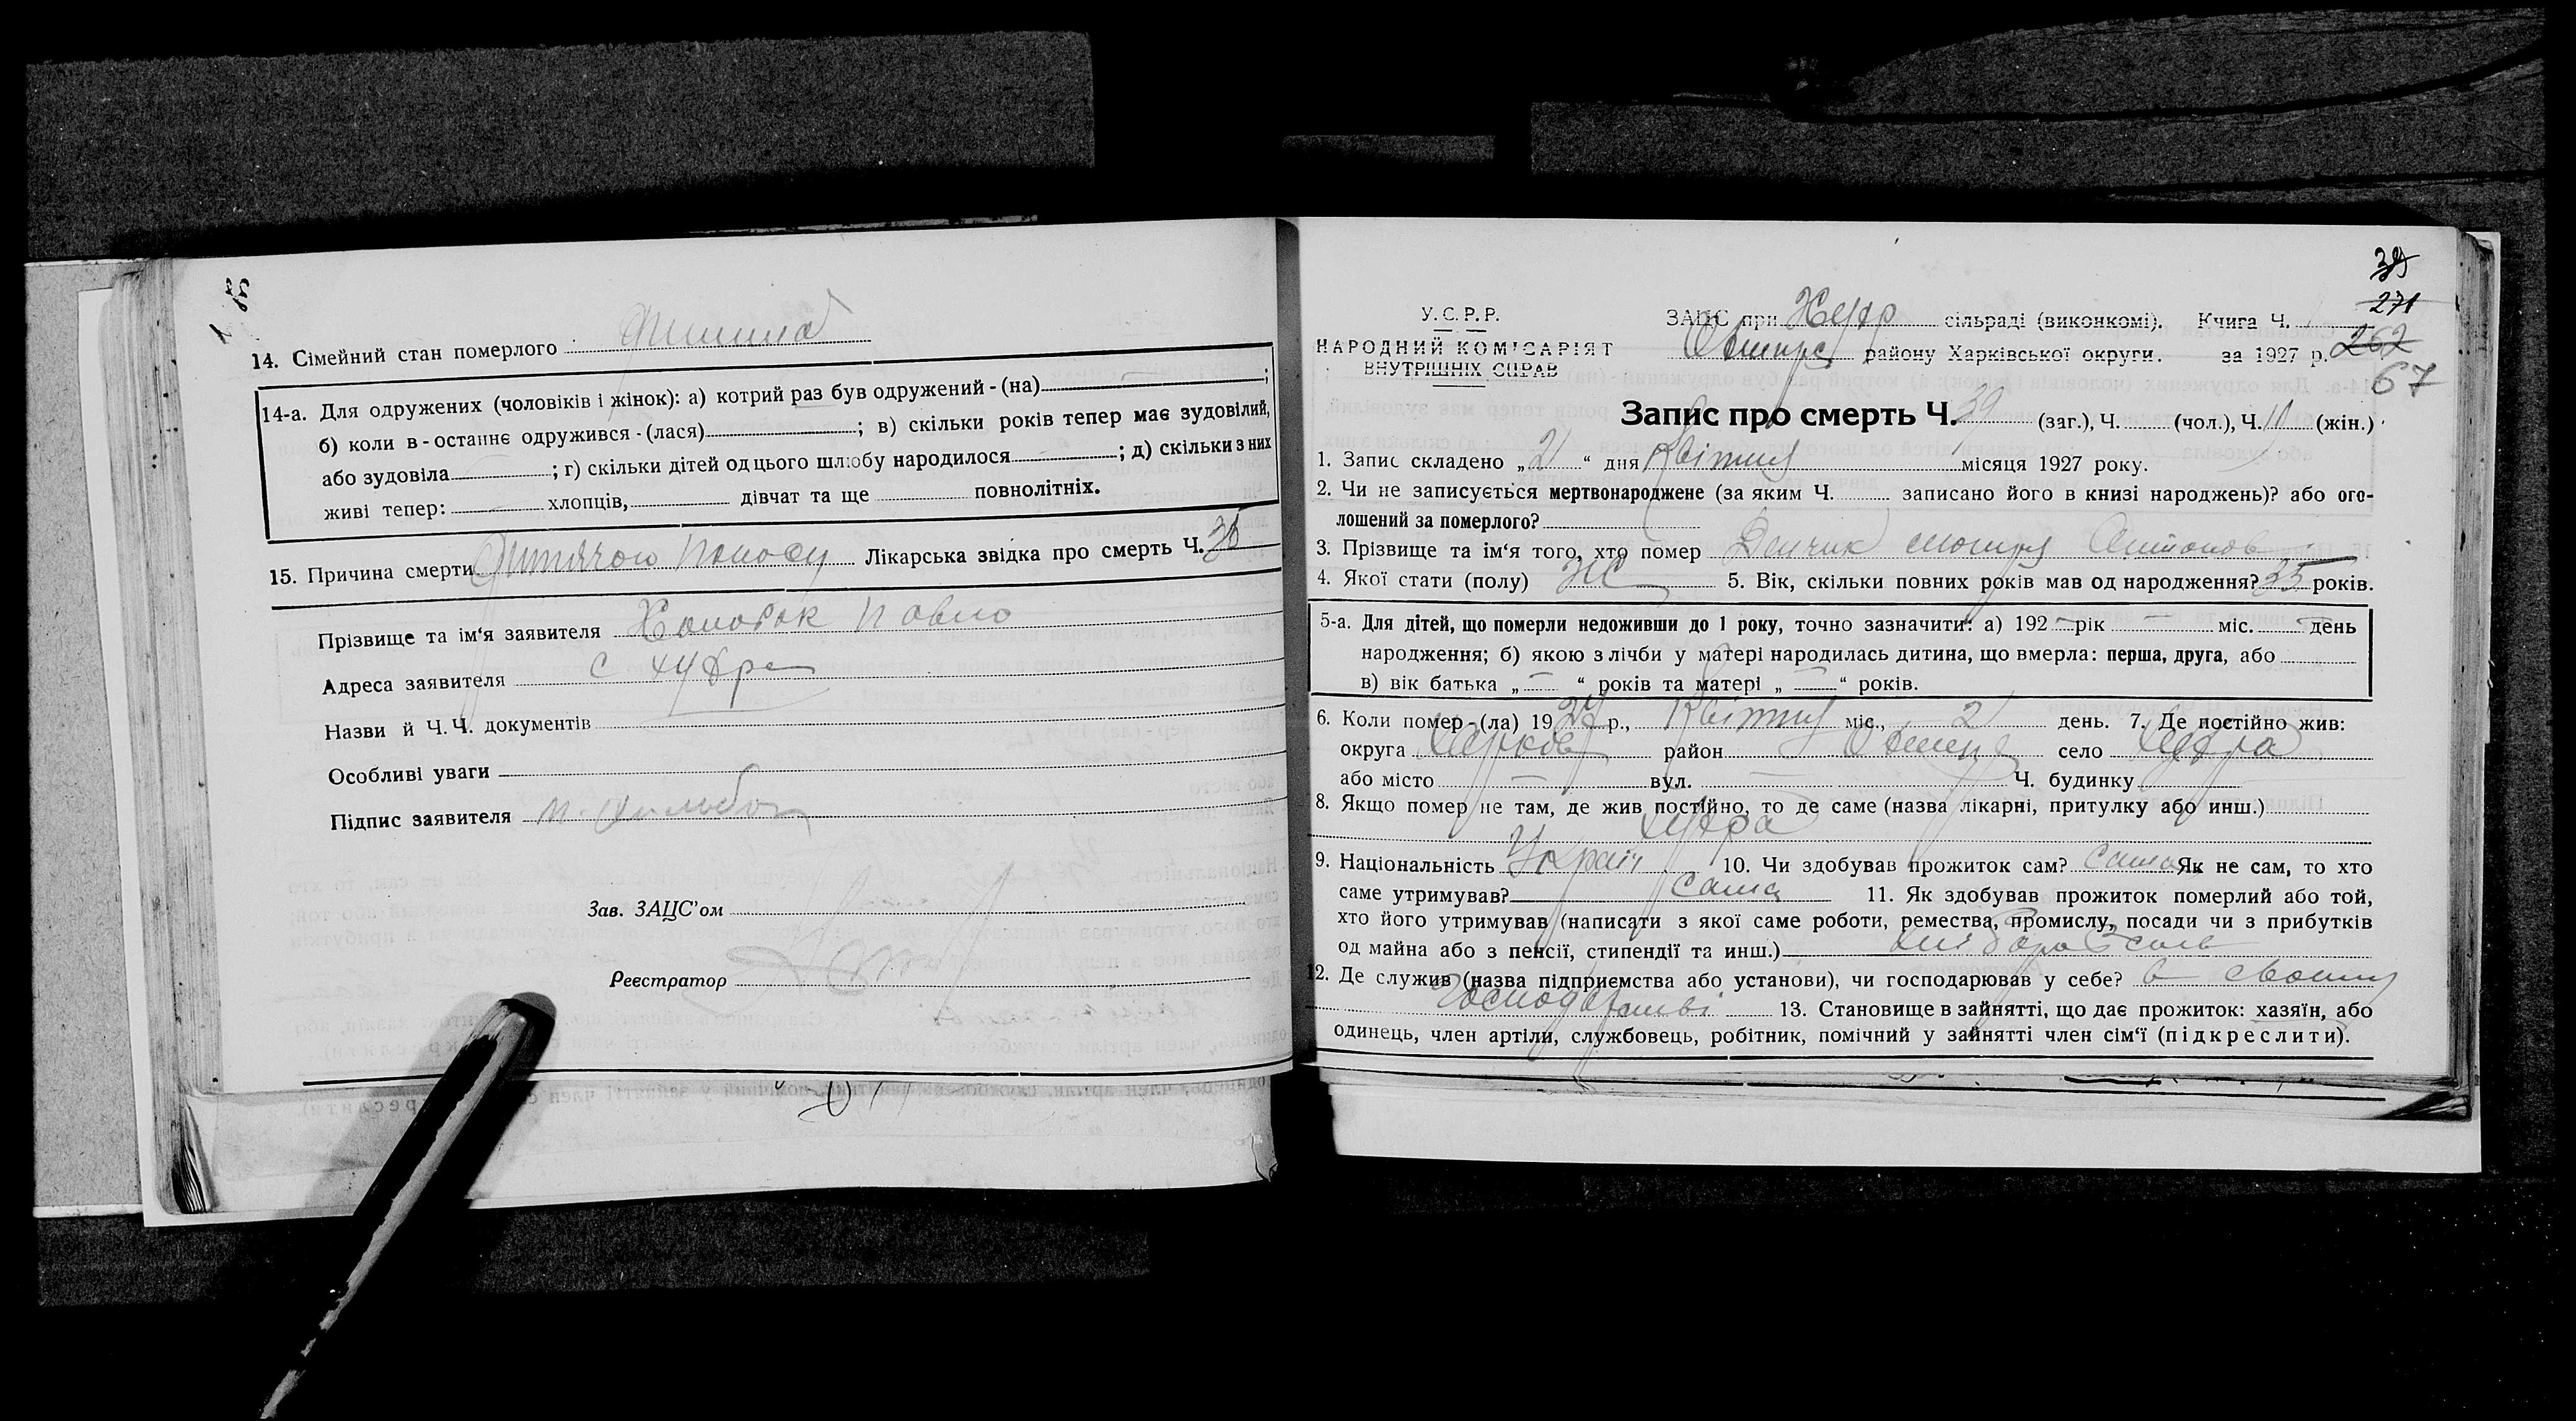 14. Сімейний стан померлого
14-а. Для одружених (чоловіків і жінок): а) котрий раз був одружений - (на) ;
б) коли в-останнє одружився - (лася) ; в) скільки років тепер має зудовілий,
або зудовіла ; г) скільки дітей од цього шлюбу народилося ; д) скільки з них
живі тепер: хлопців, дівчат та ще повнолітніх.
15. Причина смерти Дитячого поносу Лікарська звідка про смерть Ч.
Прізвище та ім'я заявителя Павло
Адреса заявителя с худра
Назви й Ч. Ч. документів
Особливі уваги
Підпис заявителя
Зав. ЗАЦС'ом
Реєстратор
39
271
У.С.Р.Р. ЗАЦС при Худр сільраді (виконкомі). Книга Ч.
262
НАРОДНИЙ КОМІСАРІЯТ району Харківської округи. за 1927 р.
ВНУТРІШНІХ СПРАВ
67
Запис про смерть Ч. 39 (заг.), Ч. (чол.), Ч. 10 (жін.)
1. Запис складено „21“ дня Квітня місяця 1927 року.
2. Чи не записується мертвонароджене (за яким Ч. записано його в книзі народжень)? або ого-
лошений за померлого?
3. Прізвище та ім'я того, хто помер
4. Якої стати (полу) Ж 5. Вік, скільки повних років мав од народження? 35 років.
5-а. Для дітей, що померли недоживши до 1 року, точно зазначити: а) 192 — рік — міс. — день
народження; б) якою з лічби у матері народилась дитина, що вмерла: перша, друга, або
в) вік батька „ — “ років та матері „ — “ років.
6. Коли помер-(ла) 1927 р., Квітня міс., 21 день. 7. Де постійно жив:
округа Харков район село Худра
або місто — вул. — Ч. будинку
8. Якщо помер не там, де жив постійно, то де саме (назва лікарні, притулку або инш.)
худра
9. Національність Україн 10. Чи здобував прожиток сам? сама Як не сам, то хто
саме утримував? сама 11. Як здобував прожиток померлий або той,
хто його утримував (написати з якої саме роботи, ремества, промислу, посади чи з прибутків
од майна або з пенсії, стипендії та инш.)
12. Де служив (назва підприємства або установи), чи господарював у себе? в своим
господарстві 13. Становище в зайнятті, що дає прожиток: хазяїн, або
одинець, член артіли, службовець, робітник, помічний у зайнятті член сім'ї (підкреслити).